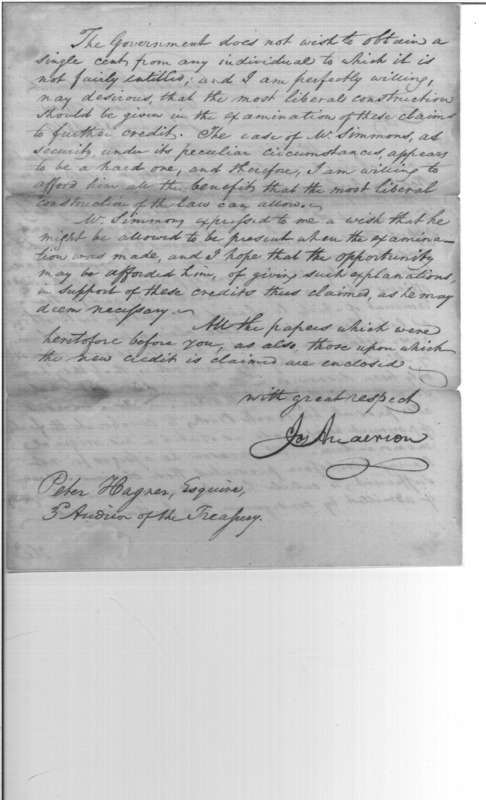 The Government does not wish to obtain a
single cent, from any individual to which it is
not fairly entitled; and I am perfectly willing,
nay desirous, that the most liberal construction
should be given in the examination of these claims
to further credit. The case of Mr. Simmons, as
security, under its peculiar circumstances, appears
to be a hard one, and therefore, I am willing to
afford him all the benefits that the most liberal
construction of the law can allow.
Mr. Simmons expressed to me a wish that he
might be allowed to be present when the examina-
tion was made, and I hope that the opportunity
may be afforded him, of giving such explanations,
in support of these credits thus claimed, as he may
deem necessary.
All the papers which were
heretofore before you, as also, those upon which
the new credit is claimed are enclosed
with great respect
Jos Anderson
Peter Hagner, Esquire,
3d Auditor of the Treasury.